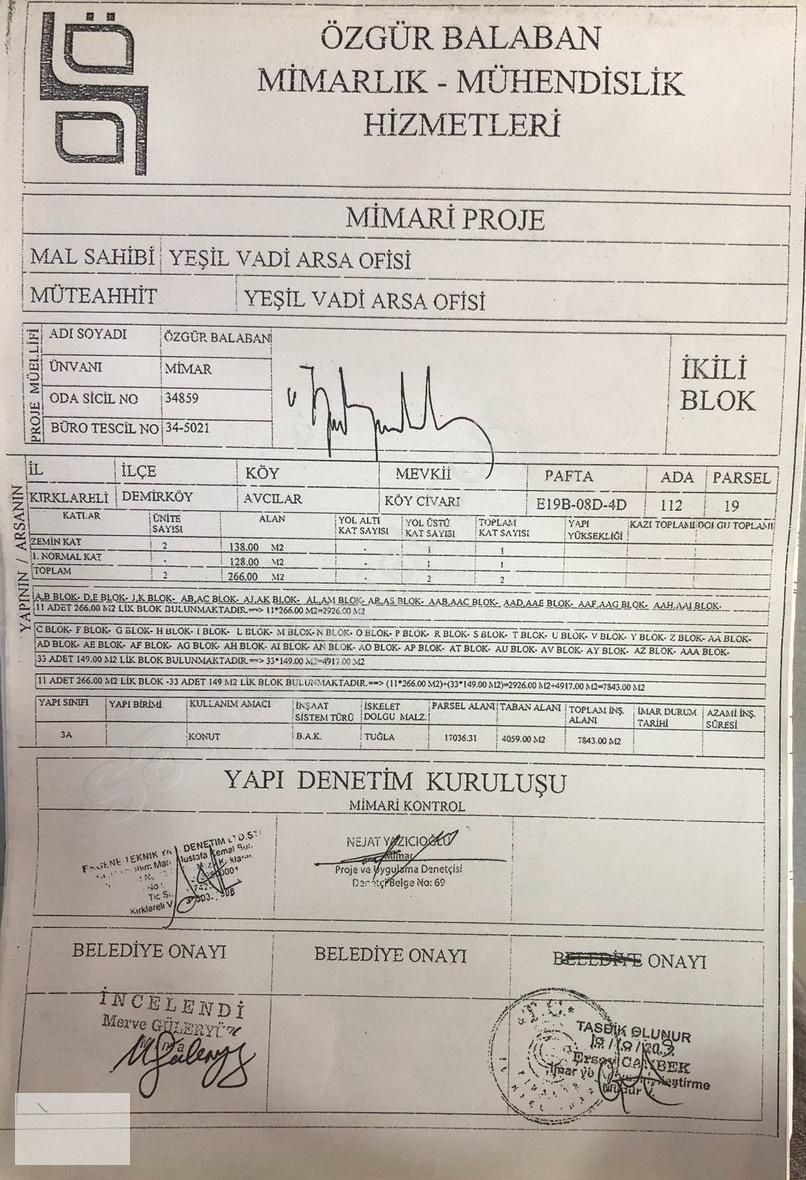 ÖZGÜR BALABAN
MİMARLIK - MÜHENDİSLİK
HİZMETLERİ
MİMARİ PROJE
MAL SAHİBİ YEŞİL VADİ ARSA OFİSİ
MÜTEAHHİT YEŞİL VADİ ARSA OFİSİ
PROJE MÜELLİFİ
ADI SOYADI ÖZGÜR BALABAN
ÜNVANI MİMAR
ODA SİCİL NO 34859
BÜRO TESCİL NO 34-5021
İKİLİ
BLOK
YAPININ / ARSANIN
İL İLÇE KÖY MEVKİİ PAFTA ADA PARSEL
KIRKLARELİ DEMİRKÖY AVCILAR KÖY CİVARI E19B-08D-4D 112 19
KATLAR ÜNİTE SAYISI ALAN YOL ALTI KAT SAYISI YOL ÜSTÜ KAT SAYISI TOPLAM KAT SAYISI YAPI YÜKSEKLİĞİ KAZI TOPLAMI DOLGU TOPLAMI
ZEMİN KAT 2 138.00 M2 - 1 1
1. NORMAL KAT - 128.00 M2 - 1 1
TOPLAM 2 266.00 M2 - 2 2
A,B BLOK- D,E BLOK- J,K BLOK- AB,AC BLOK- AJ,AK BLOK- AL,AM BLOK- AR,AS BLOK- AAB,AAC BLOK- AAD,AAE BLOK- AAF,AAG BLOK- AAH,AAI BLOK-
11 ADET 266.00 M2 LİK BLOK BULUNMAKTADIR.==> 11*266.00 M2=2926.00 M2
C BLOK- F BLOK- G BLOK- H BLOK- I BLOK- L BLOK- M BLOK- N BLOK- O BLOK- P BLOK- R BLOK- S BLOK- T BLOK- U BLOK- V BLOK- Y BLOK- Z BLOK- AA BLOK-
AD BLOK- AE BLOK- AF BLOK- AG BLOK- AH BLOK- AI BLOK- AN BLOK- AO BLOK- AP BLOK- AT BLOK- AU BLOK- AV BLOK- AY BLOK- AZ BLOK- AAA BLOK-
33 ADET 149.00 M2 LİK BLOK BULUNMAKTADIR.==> 33*149.00 M2=4917.00 M2
11 ADET 266.00 M2 LİK BLOK -33 ADET 149 M2 LİK BLOK BULUNMAKTADIR.==> (11*266.00 M2)+(33*149.00 M2)=2926.00 M2+4917.00 M2=7843.00 M2
YAPI SINIFI YAPI BİRİMİ KULLANIM AMACI İNŞAAT SİSTEM TÜRÜ İSKELET DOLGU MALZ. PARSEL ALANI TABAN ALANI TOPLAM İNŞ. ALANI İMAR DURUM TARİHİ AZAMİ İNŞ. SÜRESİ
3A KONUT B.A.K. TUĞLA 17036.31 4059.00 M2 7843.00 M2
YAPI DENETİM KURULUŞU
MİMARİ KONTROL
TEKNİK YA DENETİM LTD.ŞTİ
Mustafa Kemal
Kırklareli
NEJAT YAZICIOĞLU
Mimar
Proje ve Uygulama Denetçisi
Denetçi Belge No: 69
BELEDİYE ONAYI BELEDİYE ONAYI BELEDİYE ONAYI
İNCELENDİ
Merve GÜLERYÜZ
T.C.
TASDİK OLUNUR
Ersoy CANBEK
İmar ve